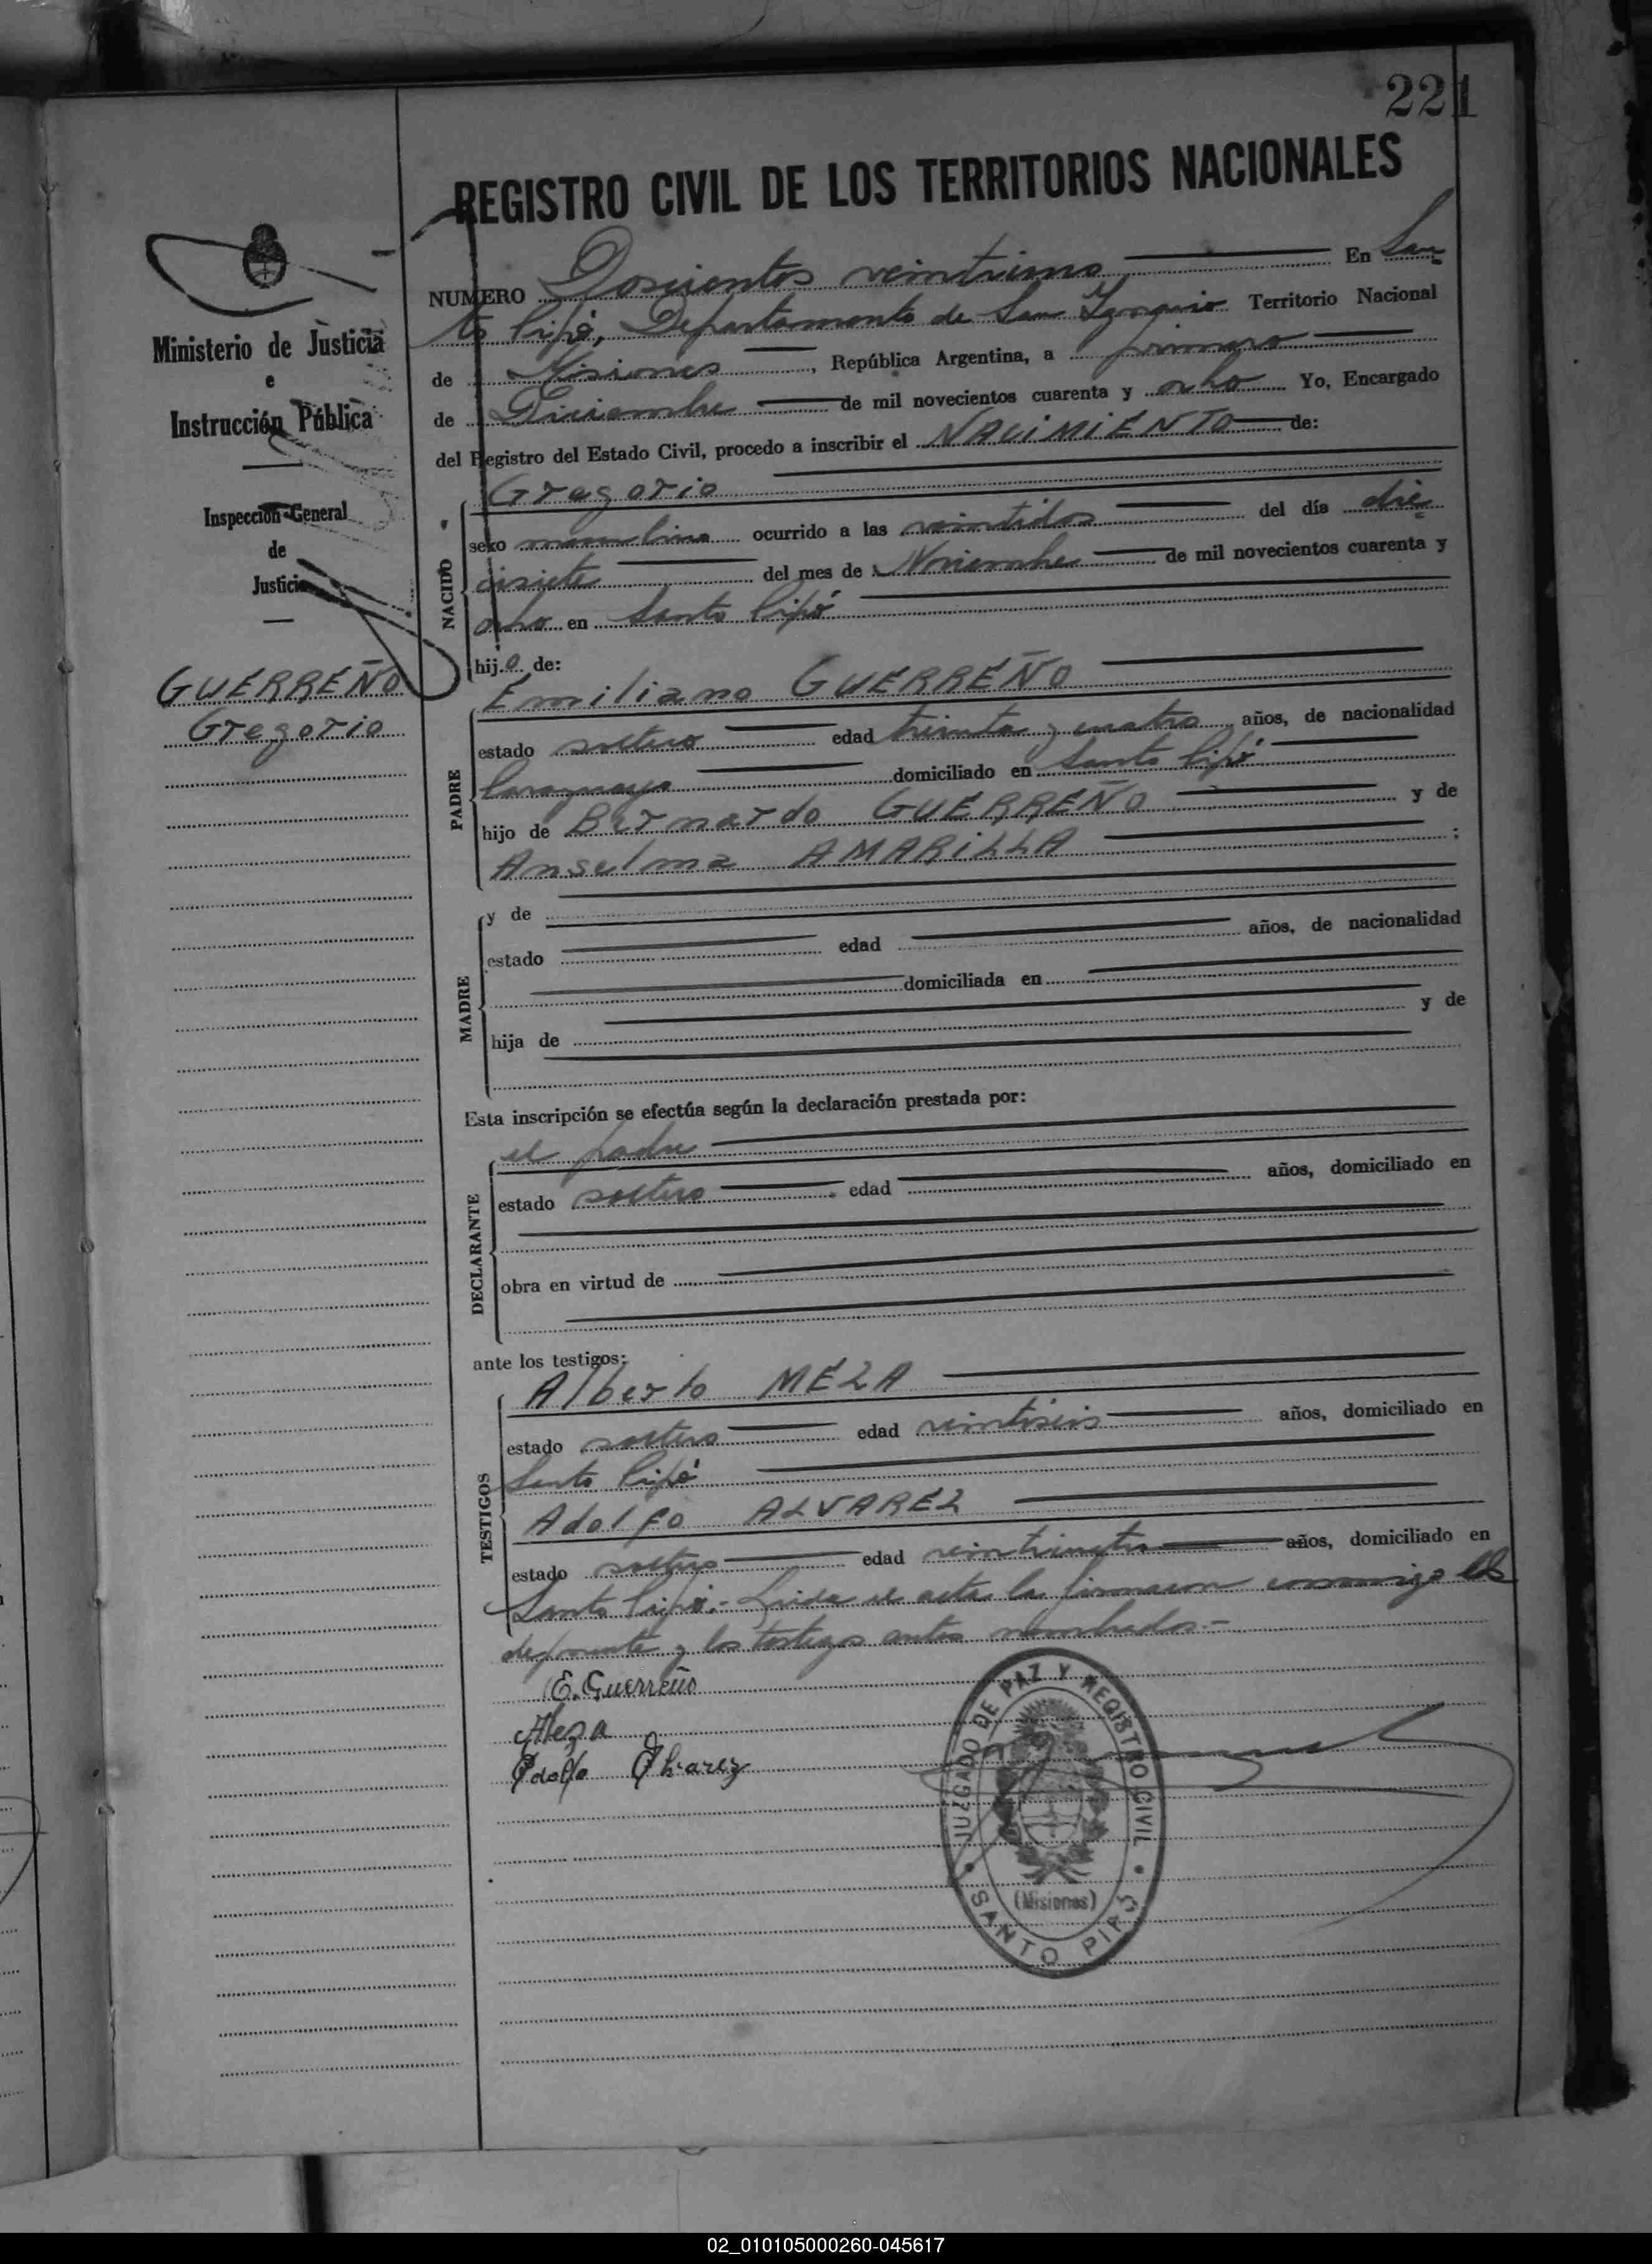 221
REGISTRO CIVIL DE LOS TERRITORIOS NACIONALES
Ministerio de Justicia
e
Instrucción Pública
Inspección General
de
Justicia
GUERREÑO
Gregorio
NUMERO Doscientos veintiuno En San-
to Pipó, Departamento de San Ignacio Territorio Nacional
de Misiones, República Argentina, a primero
de Diciembre de mil novecientos cuarenta y ocho Yo, Encargado
del Registro del Estado Civil, procedo a inscribir el NACIMIENTO de:
NACIDO
Gregorio
sexo masculino ocurrido a las veintidos del día die-
cisiete del mes de Noviembre de mil novecientos cuarenta y
ocho en Santo Pipó
hijo de:
PADRE
Emiliano GUERREÑO
estado soltero edad treinta y cuatro años, de nacionalidad
Paraguaya domiciliado en Santo Pipó
hijo de Bernardo GUERREÑO y de
Anselma AMARILLA ;
MADRE
y de
estado edad años, de nacionalidad
domiciliada en
hija de y de
Esta inscripción se efectúa según la declaración prestada por:
DECLARANTE
el padre
estado soltero edad años, domiciliado en
obra en virtud de
ante los testigos:
TESTIGOS
Alberto MEZA
estado soltero edad veintiseis años, domiciliado en
Santo Pipó
Adolfo ALVAREZ
estado soltero edad años, domiciliado en
Santo Pipó.- Leida el acta la firmaron conmigo el
deponente y los testigos antes nombrados.-
E. Guerreño
AMeza
Adolfo Alvarez
JUZGADO DE PAZ Y REGISTRO CIVIL
(Misiones)
SANTO PIPÓ
02_010105000260-045617